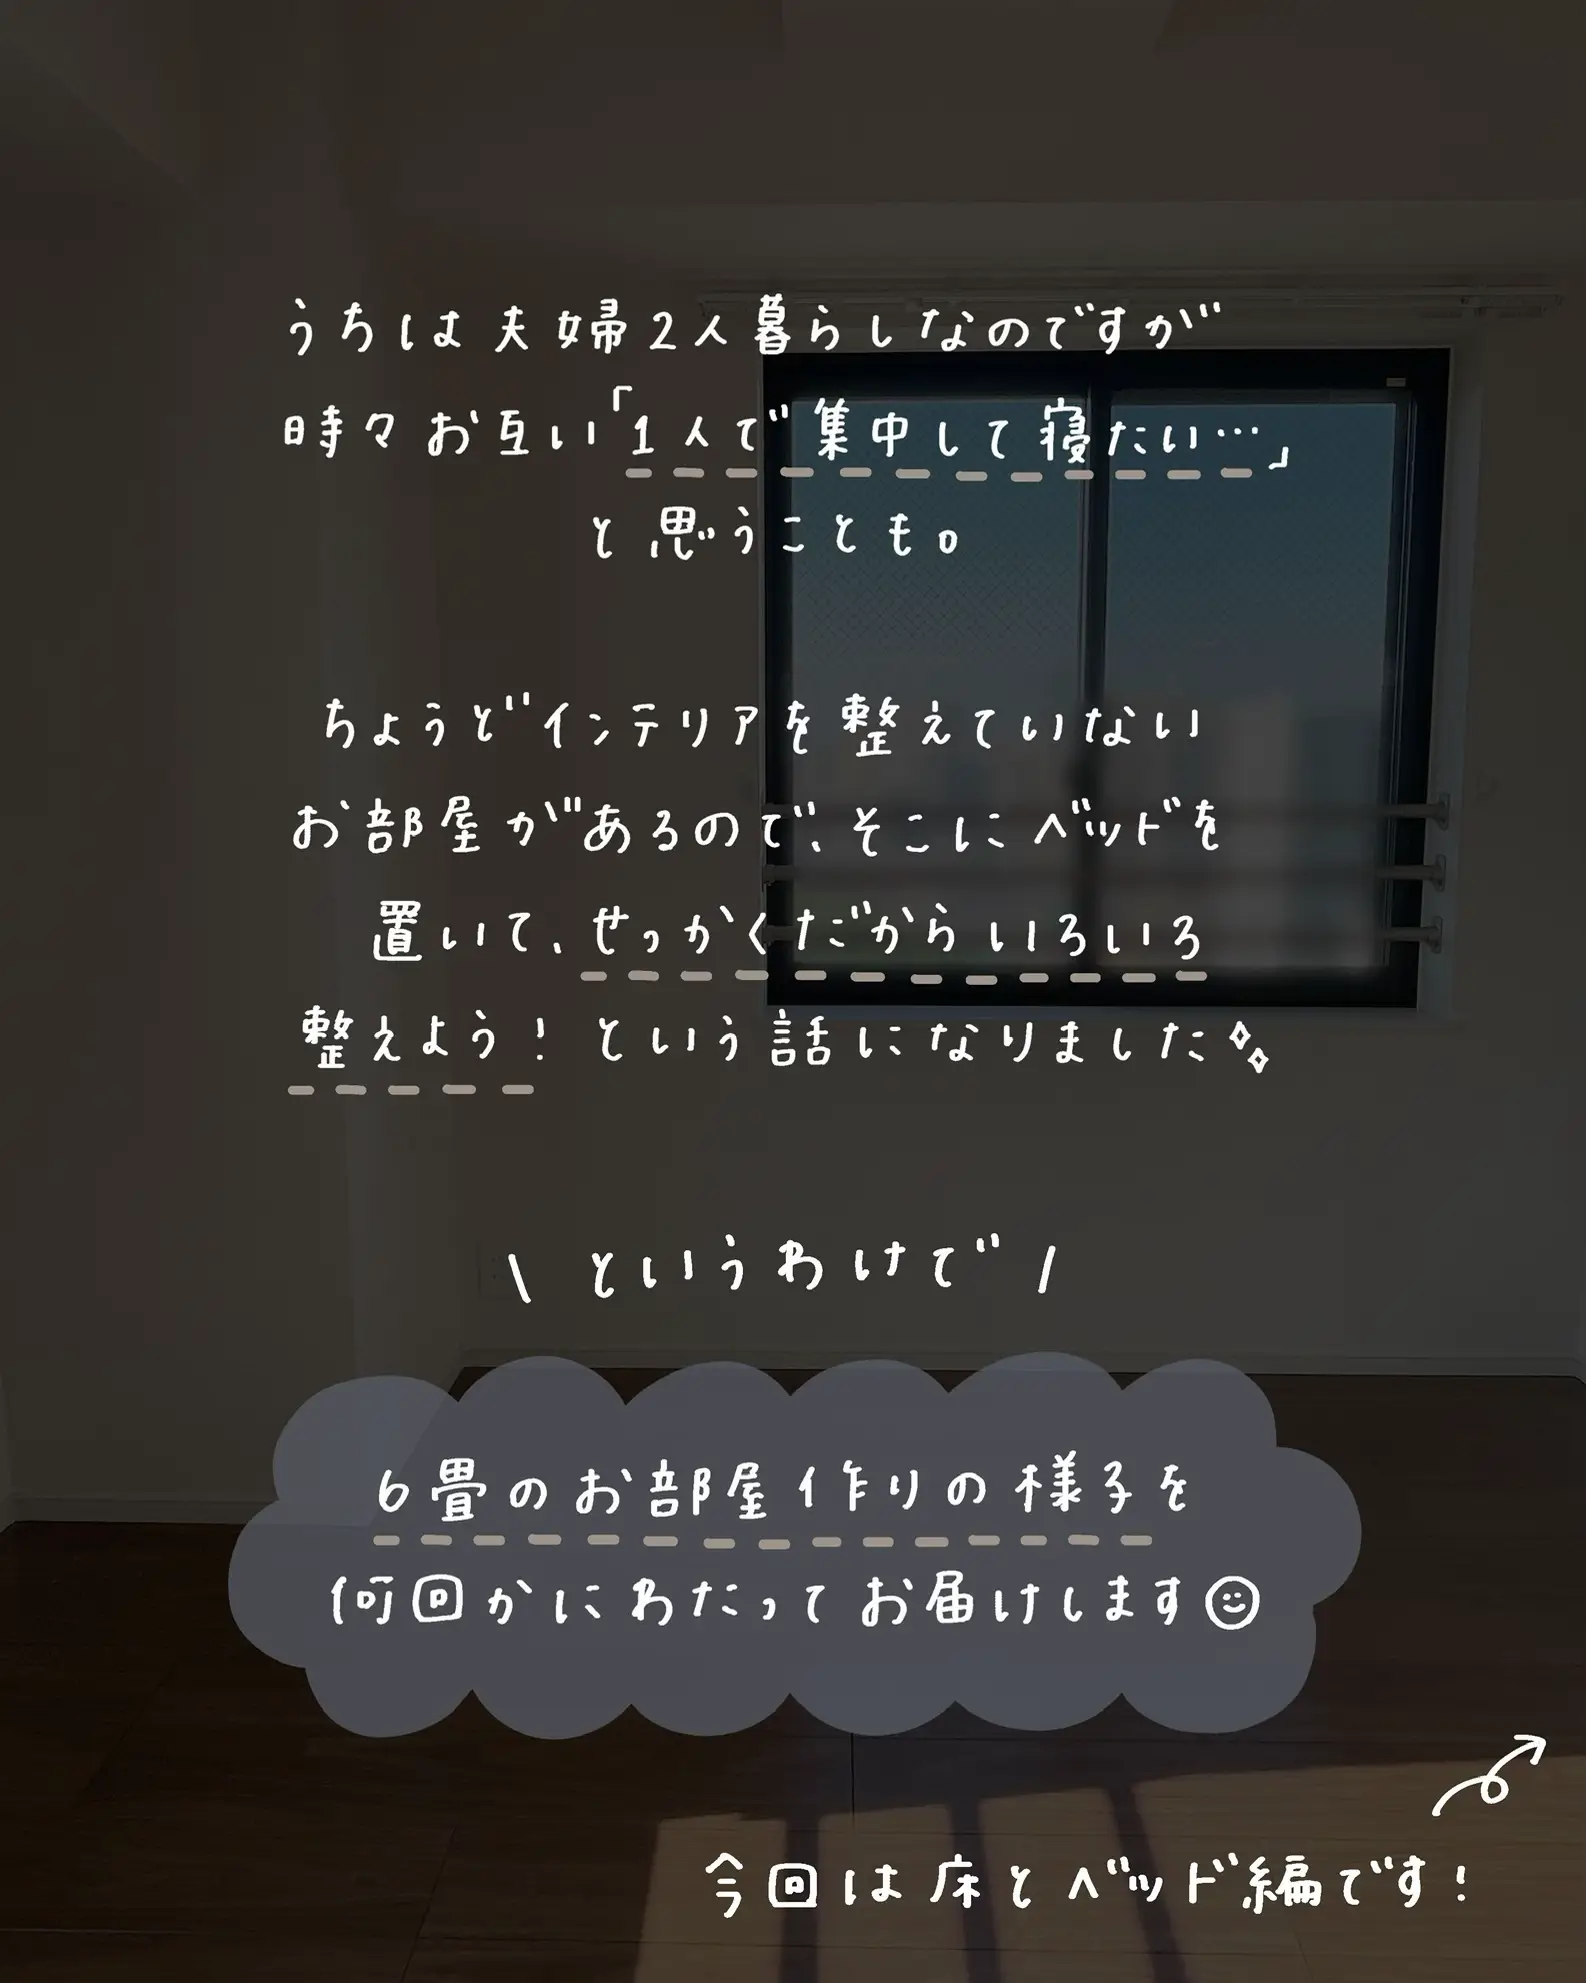 うちは夫婦2人暮らしなのですが
時々お互い「1人で集中して寝たい…」
と思うことも。
ちょうどインテリアを整えていない
お部屋があるので、そこにベッドを
置いて、せっかくだからいろいろ
整えよう!という話になりました
\ というわけで /
6畳のお部屋作りの様子を
何回かにわたってお届けします
今回は床とベッド編です!